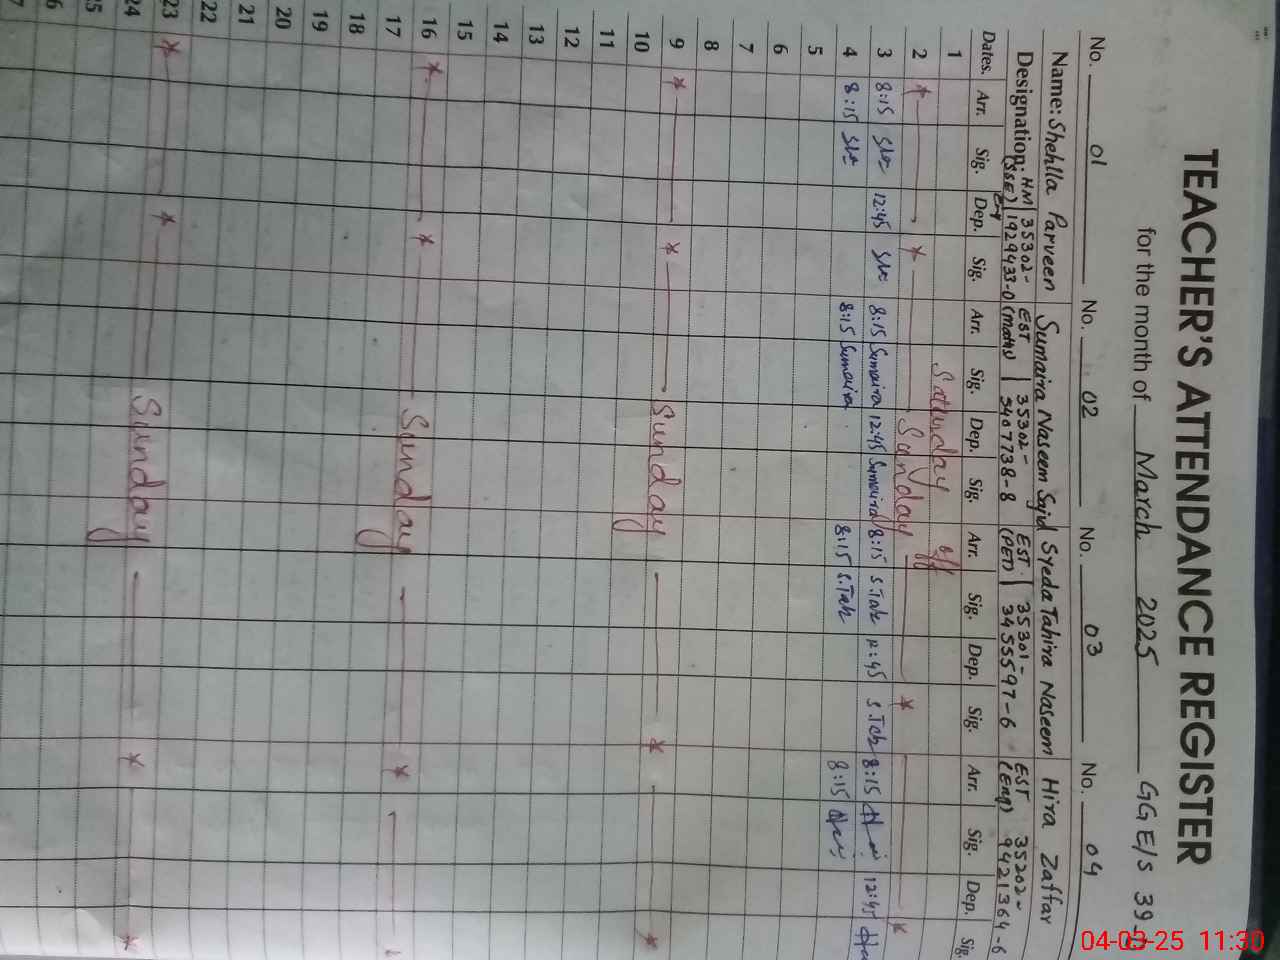 TEACHER'S ATTENDANCE REGISTER
for the month of March 2025 GGE/S 39-
No. 01 No. 02 No. 03 No. 04
Name: Shehlla Parveen Sumaira Naseem Sajid Syeda Tahira Naseem Hira Zaffar
Designation: HM 35302- EST 35302- EST 35301- EST 35202-
(SSE) 1929433-0 (math) 5407738-8 (PET) 3455597-6 (Eng) 9421364-6
Dates. Arr. Sig. Dep. Sig. Arr. Sig. Dep. Sig. Arr. Sig. Dep. Sig. Arr. Sig. Dep. Sig.
1 Saturday off
2 * * Sunday * *
3 8:15 12:45 8:15 Sumaira 12:45 Sumaira 8:15 S.Tah 12:45 S.Tah 8:15 12:45
4 8:15 8:15 Sumaira 8:15 S.Tah 8:15
5
6
7
8
9 * * Sunday * *
10
11
12
13
14
15
16 * * Sunday *
17
18
19
20
21
22
23 * * Sunday * *
24
25
04-03-25 11:30